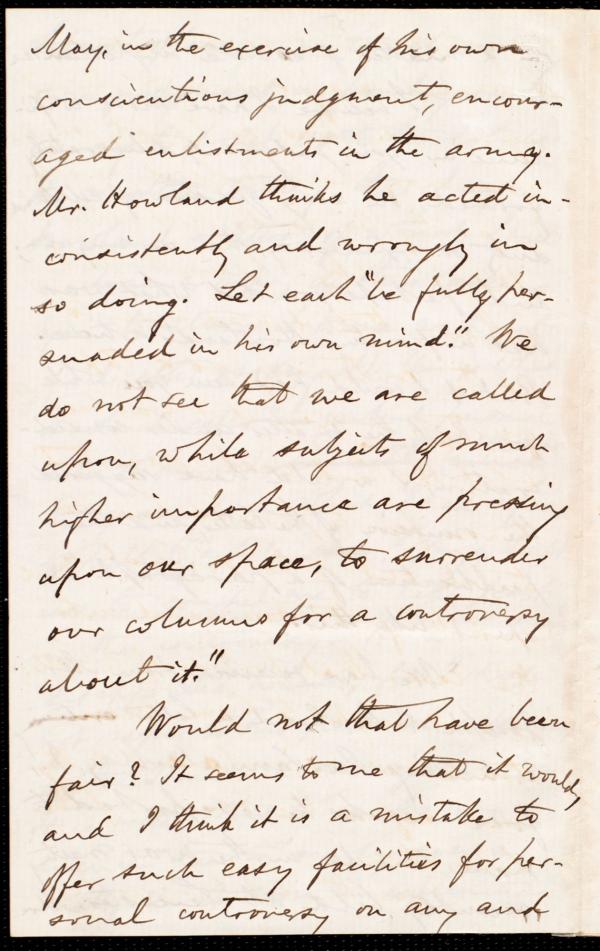 May, in the exercise of his own
conscientious judgment, encour-
aged enlistments in the army.
Mr. Howland thinks he acted in-
consistently and wrongly in
so doing. Let each "be fully per-
suaded in his own mind." We
do not see that we are called
upon, while subjects of much
higher importance are pressing
upon our space, to surrender
our columns for a controversy
about it."
Would not that have been
fair? It seems to me that it would,
and I think it is a mistake to
offer such easy facilities for per-
sonal controversy on any and